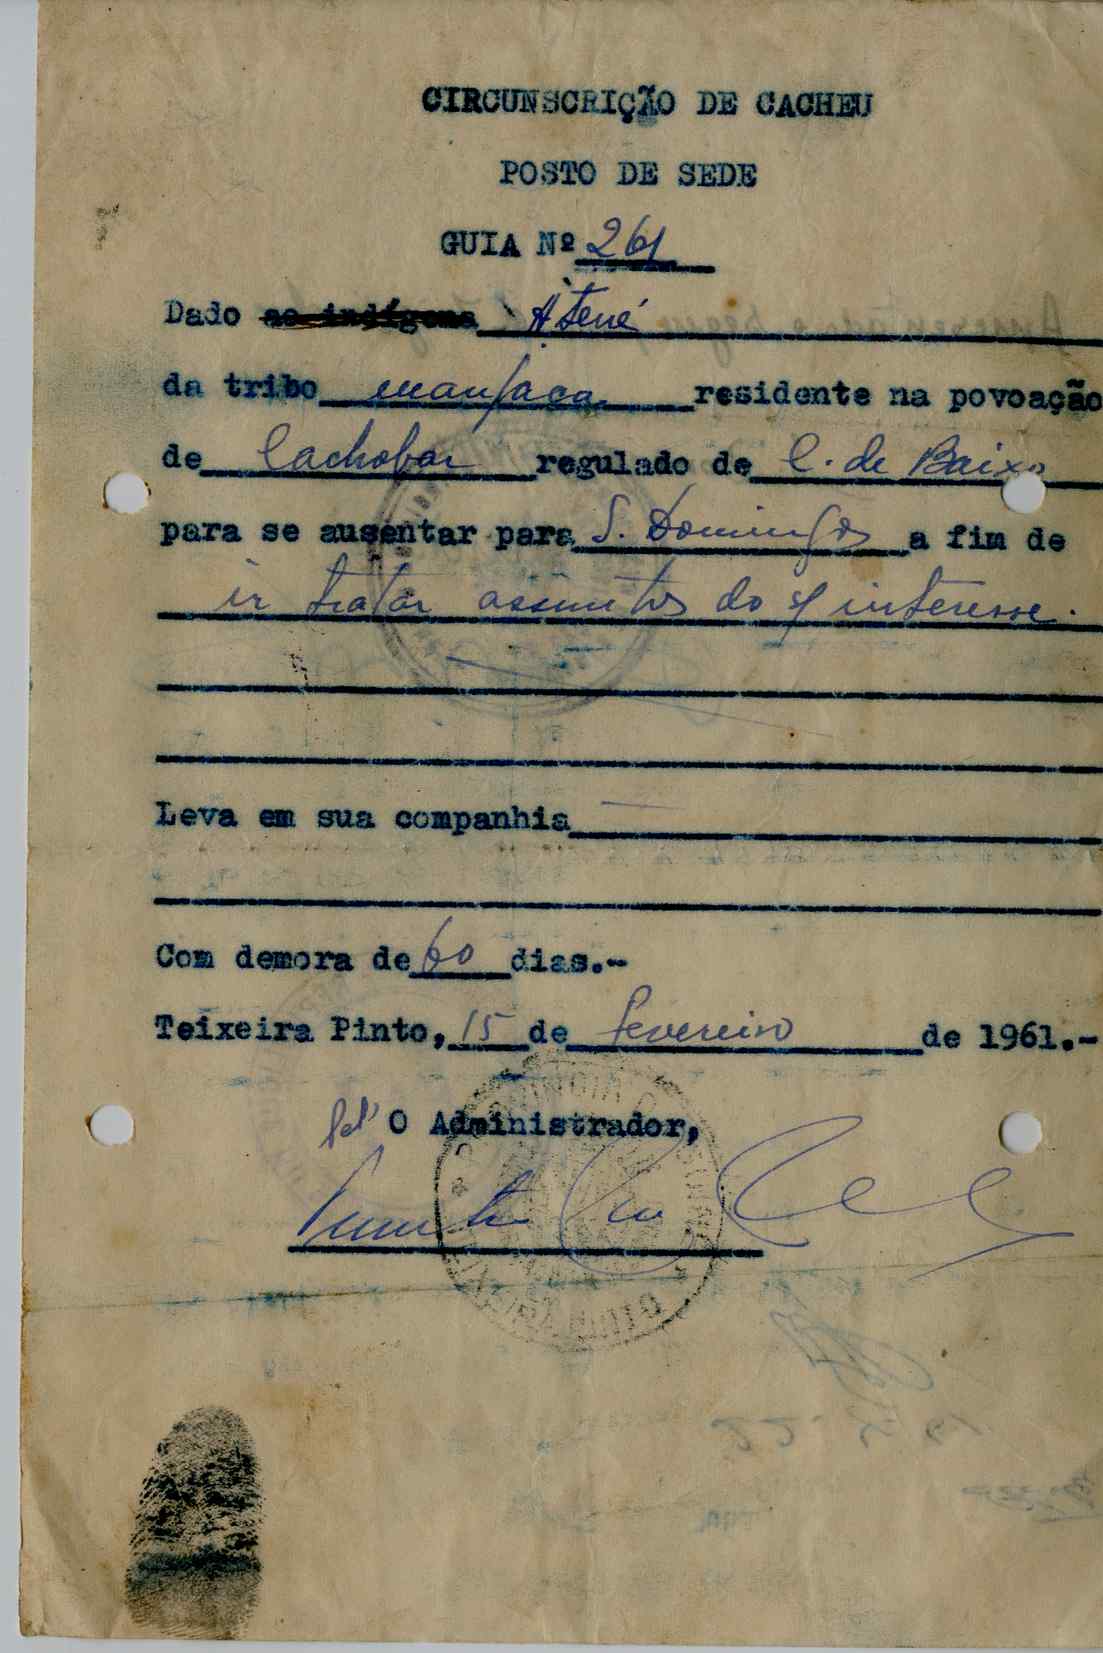 CIRCUNSCRIÇÃO DE CACHEU
POSTO DE SEDE
GUIA Nº 261
Dado ao indígena Atené
da tribo manjaca residente na povoação
de Cachobar regulado de C. de Baixo
para se ausentar para S. Domingos a fim de
ir tratar assuntos do s/ interesse.
Leva em sua companhia
Com demora de 60 dias.-
Teixeira Pinto, 15 de fevereiro de 1961.-
O Administrador,